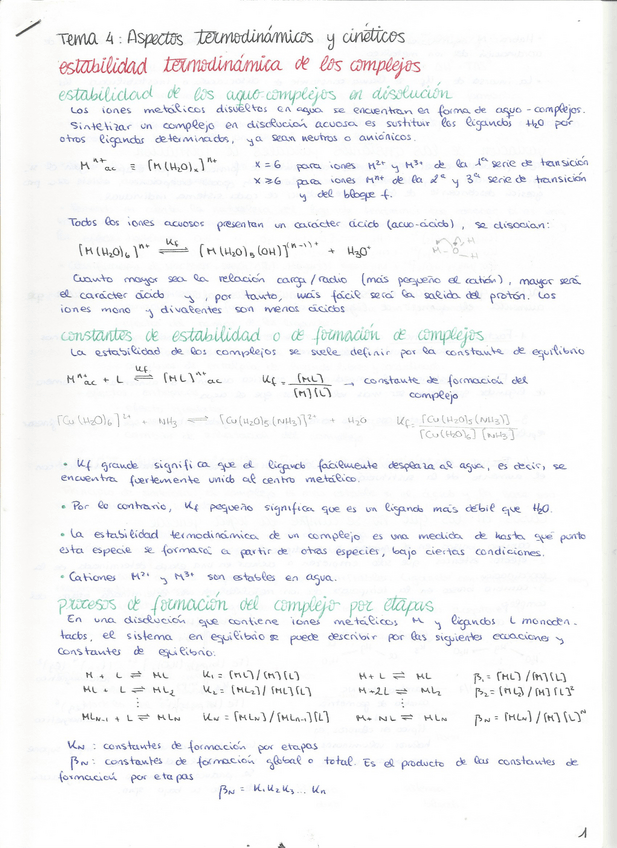 Tema 4: Aspectos termodinámicos y cinéticos
estabilidad termodinámica de los complejos
estabilidad de los aquo-complejos en disolución
Los iones metálicos disueltos en agua se encuentran en forma de aquo-complejos.
Sintetizar un complejo en disolución acuosa es sustituir los ligandos H₂O por
otros ligandos determinados, ya sean neutros o aniónicos.
Mⁿ⁺ac ≡ [M(H₂O)ₓ]ⁿ⁺ x=6 para iones M²⁺ y M³⁺ de la 1ª serie de transición
x≥6 para iones Mⁿ⁺ de la 2ª y 3ª serie de transición
y del bloque f.
Todos los iones acuosos presentan un carácter ácido (acuo-ácido), se disocian:
[M(H₂O)₆]ⁿ⁺ ⇌ Kf [M(H₂O)₅(OH)]⁽ⁿ⁻¹⁾⁺ + H₃O⁺ M-O-H H
Cuanto mayor sea la relación carga/radio (más pequeño el catión), mayor será
el carácter ácido y, por tanto, más fácil será la salida del protón. Los
iones mono y divalentes son menos ácidos
constantes de estabilidad o de formación de complejos
La estabilidad de los complejos se suele definir por la constante de equilibrio
Mⁿ⁺ac + L ⇌ Kf [ML]ⁿ⁺ac Kf = [ML]/[M][L] → constante de formación del
complejo
[Cu(H₂O)₆]²⁺ + NH₃ ⇌ [Cu(H₂O)₅(NH₃)]²⁺ + H₂O Kf = [Cu(H₂O)₅(NH₃)]/[Cu(H₂O)₆][NH₃]
• Kf grande significa que el ligando fácilmente desplaza al agua, es decir, se
encuentra fuertemente unido al centro metálico.
• Por lo contrario, Kf pequeño significa que es un ligando más débil que H₂O.
• La estabilidad termodinámica de un complejo es una medida de hasta qué punto
esta especie se formará a partir de otras especies, bajo ciertas condiciones.
• Cationes M²⁺ y M³⁺ son estables en agua.
procesos de formación del complejo por etapas
En una disolución que contiene iones metálicos M y ligandos L monoden-
tados, el sistema en equilibrio se puede describir por las siguientes ecuaciones y
constantes de equilibrio:
M + L ⇌ ML K₁ = [ML]/[M][L] M+L ⇌ ML β₁ = [ML]/[M][L]
ML + L ⇌ ML₂ K₂ = [ML₂]/[ML][L] M+2L ⇌ ML₂ β₂ = [ML₂]/[M][L]²
⋮ ⋮
MLN-1 + L ⇌ MLN KN = [MLN]/[MLn-1][L] M+ NL ⇌ MLN βN = [MLN]/[M][L]ᴺ
KN: constantes de formación por etapas
βN: constantes de formación global o total. Es el producto de las constantes de
formación por etapas
βN = K₁K₂K₃... Kn
1